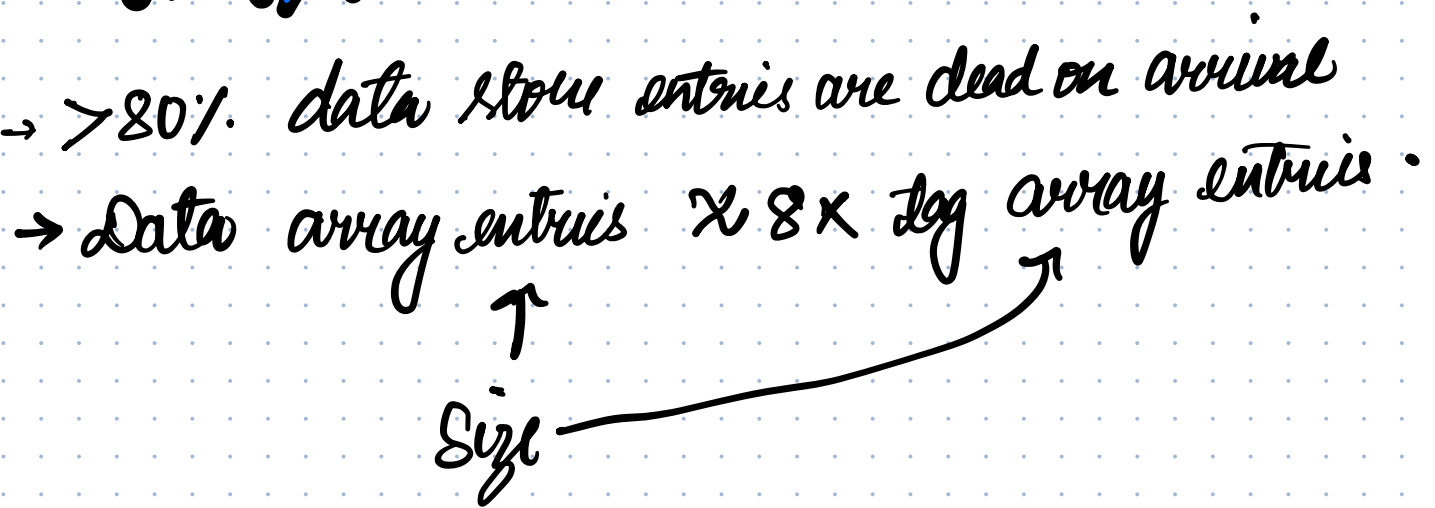 → >80% data store entries are dead on arrival
→ Data array entries ≈ 8x tag array entries.
Size